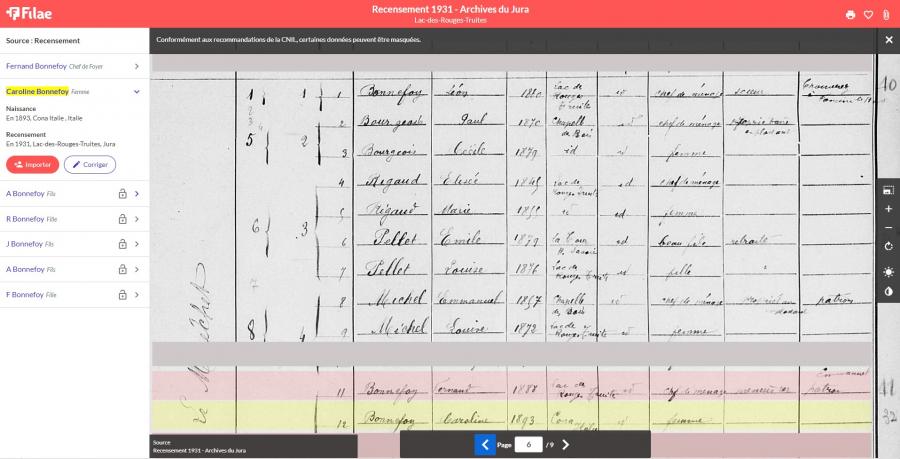 Filae
Recensement 1931 - Archives du Jura
Lac-des-Rouges-Truites
Source : Recensement
Conformément aux recommandations de la CNIL, certaines données peuvent être masquées.
Fernand Bonnefoy Chef de Foyer
Caroline Bonnefoy Femme
Naissance
En 1893, Cona Italie , Italie
Recensement
En 1931, Lac-des-Rouges-Truites, Jura
Importer
Corriger
A Bonnefoy Fils
R Bonnefoy Fille
J Bonnefoy Fils
A Bonnefoy Fils
F Bonnefoy Fille
1 1 1 Bonnefoy Léon Lac de Rouges Truite id chef de ménage
10
2 Bourgeois Paul 1870 Chapelle des Bois id chef de ménage
5 2
3 Bourgeois Cécile 1879 id id femme
4 Rigaud Elisée Lac de id chef de ménage
5 Rigaud Marie id id femme
6 3
6 Pellet Emile 1879 la Tour id beau fils retraité
7 Pellet Louise 1876 Lac de Rouges Truite id fille
8 Michel Emmanuel 1867 Chapelle des Bois id chef de ménage patron
8 4
9 Michel Louise 1872 Lac de Rouges Truite id femme
11 Bonnefoy Fernand 1887 Lac de Rouges Truite id chef de ménage patron
11
12 Bonnefoy Caroline 1893 Cona femme
32
Source
Recensement 1931 - Archives du Jura
Page 6 / 9